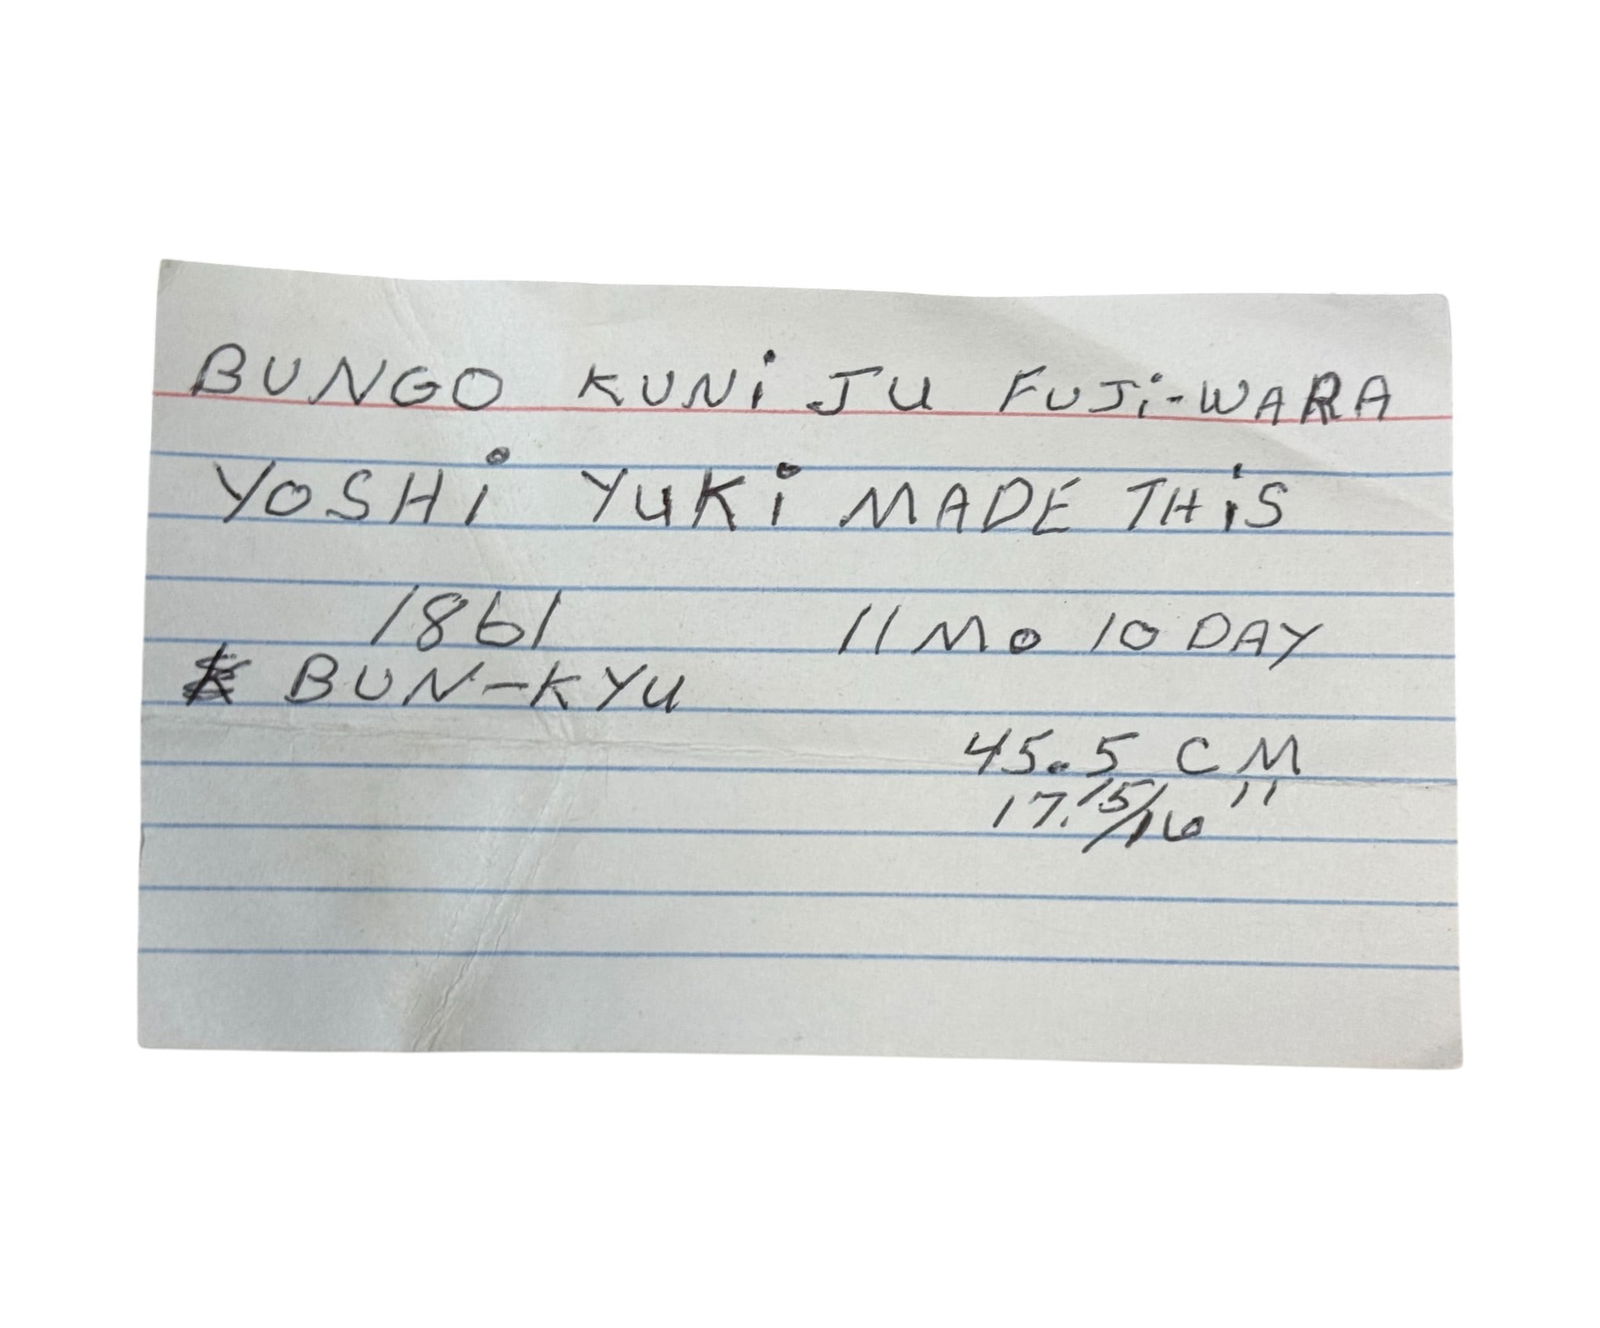 BUNGO KUNi JU FUJi-WARA
YOSHi YUKi MADE THiS
1861 11 Mo 10 DAY
BUN-KYU
45.5 CM
17.15/16"